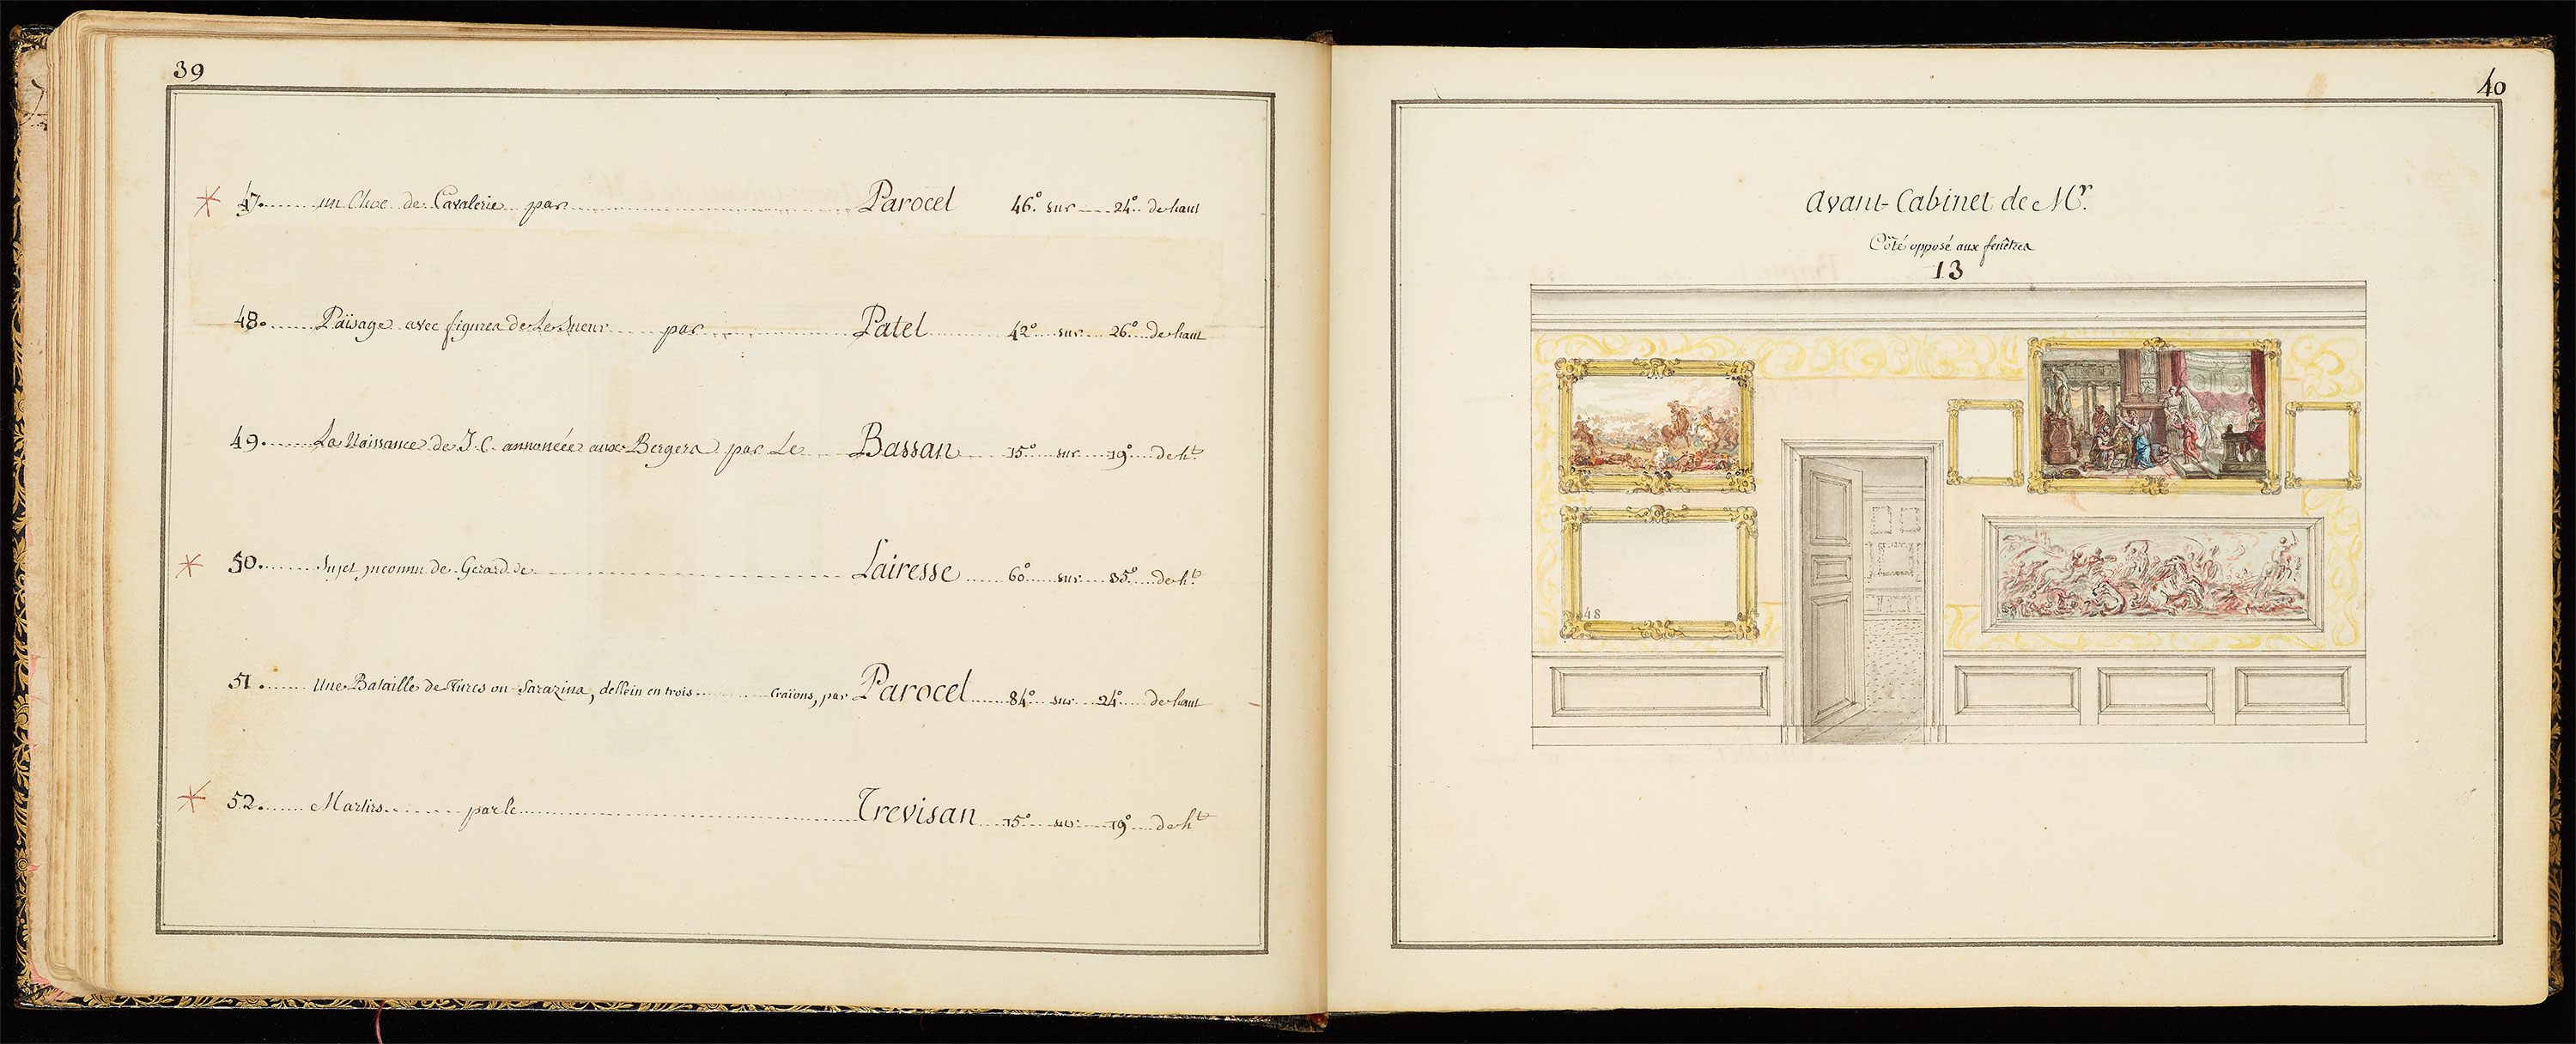 39
47. un Choc de Cavalerie par Parocel 46° sur 24° de haut
48. Païsage avec figures de Le Sueur par Patel 42° sur 26° de haut
49. La Naissance de J. C. annoncée aux Bergers par Le Bassan 15° sur 19° de ht
50. Sujet inconnu de Gerard de Lairesse 60° sur 35° de ht
51. Une Bataille de Turcs ou Sarazins, dessein en trois craions, par Parocel 84° sur 24° de haut
52. Martirs par le Trevisan 15° sur 19° de ht
40
Avant-Cabinet de Mr.
Côté opposé aux fenêtres
13
48